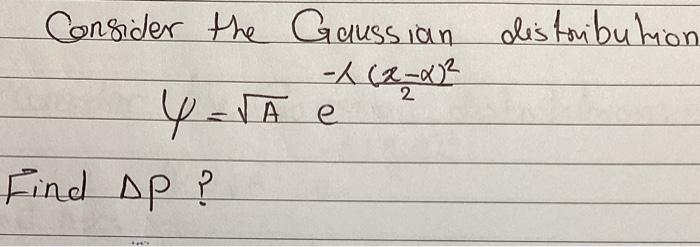 Consider the Gaussian distribution
-λ (x-α)²
2
ψ = √A e
Find ΔP ?